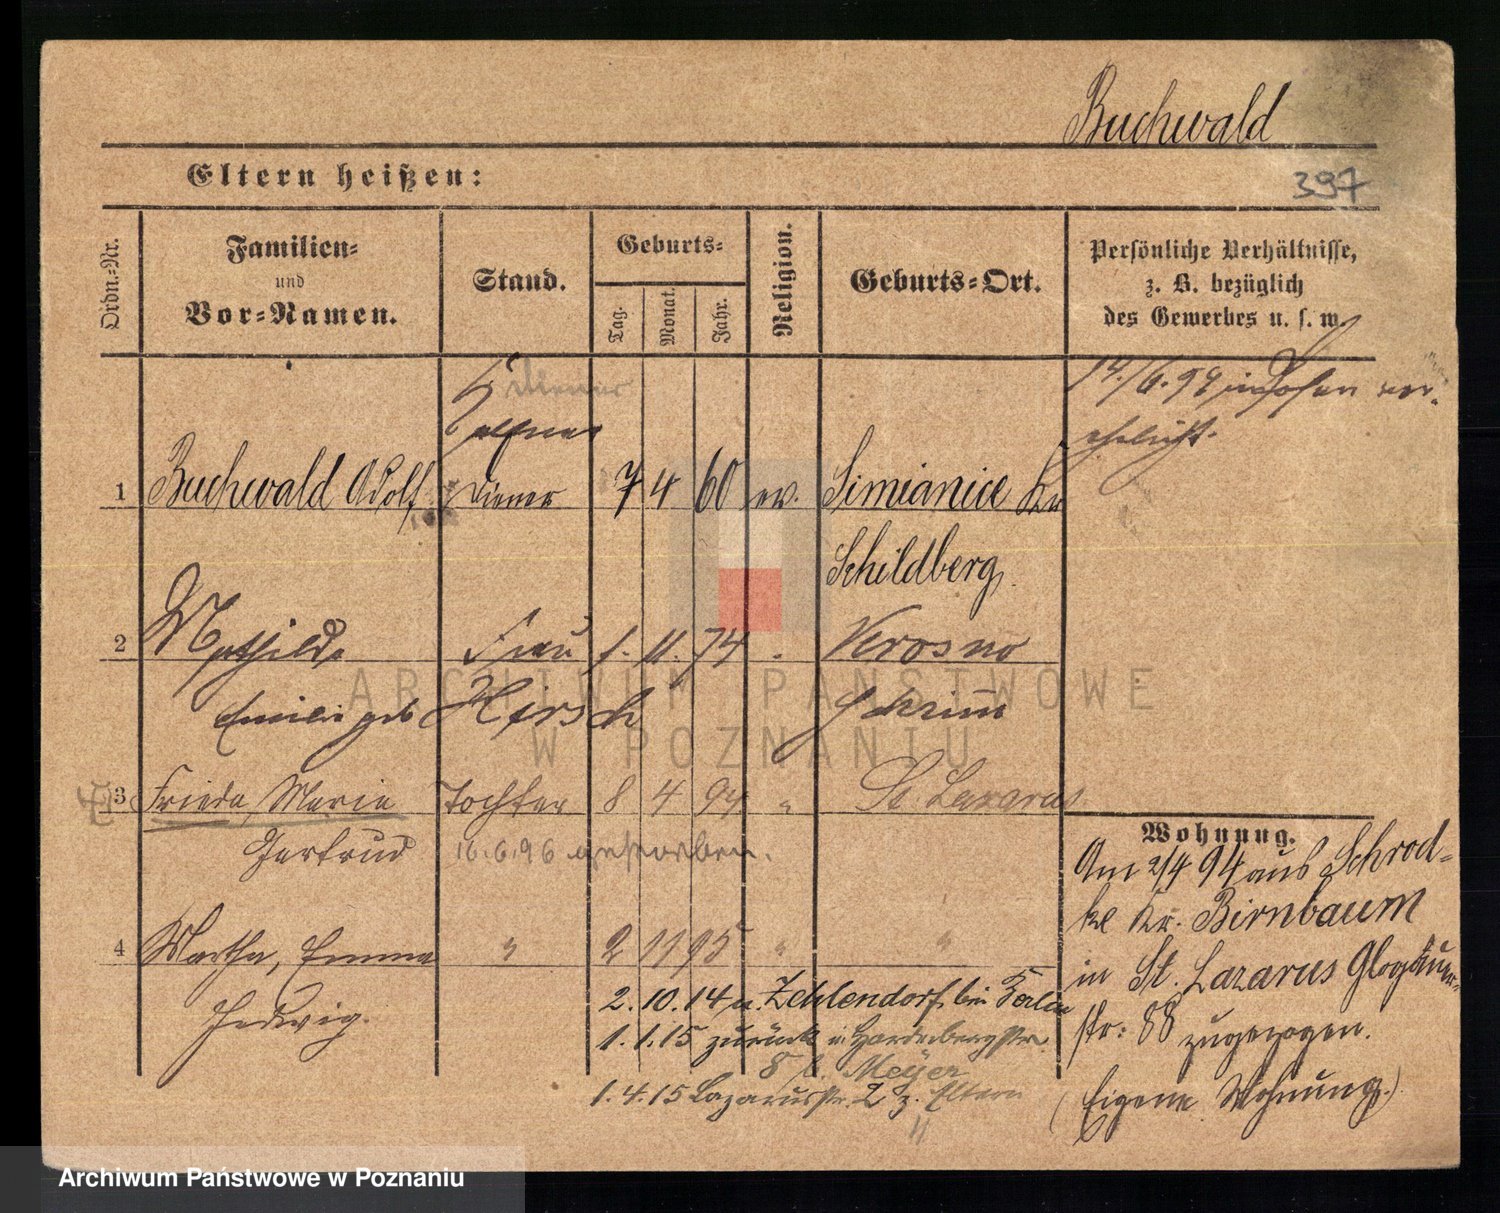 Buchwald
397
Eltern heißen:
Ordn.-Nr.
Familien-
und
Vor-Namen.
Stand.
Geburts-
Tag.
Monat.
Jahr.
Religion.
Geburts-Ort.
Persönliche Verhältnisse,
z. B. bezüglich
des Gewerbes u. s. w.
14./6. 94 in Posen ver-
ehelicht.
Diener
1 Buchwald Adolf Diener 7 4 60 ev. Simianice Kr
Schildberg
2 Mathilde Frau 1. 11. 74 " Krosno
Emilie geb Hirsch Schrimm
3 Frieda, Maria Tochter 8 4 94 " St. Lazarus
Gertrud 16.6.96 gestorben.
4 Martha, Emma " 2 11 95 " "
Hedwig.
2. 10. 14 n. Zehlendorf bei Berlin
1. 1. 15 zurück n. Hardenbergstr.
8 b. Meyer
1. 4. 15 Lazarusstr. 2 z. Eltern
Wohnung.
Am 2/4 94 aus Schrod-
ke Kr. Birnbaum
in St. Lazarus Glogauer-
str: 88 zugezogen.
(Eigene Wohnung.)
ARCHIWUM PAŃSTWOWE
W POZNANIU
Archiwum Państwowe w Poznaniu